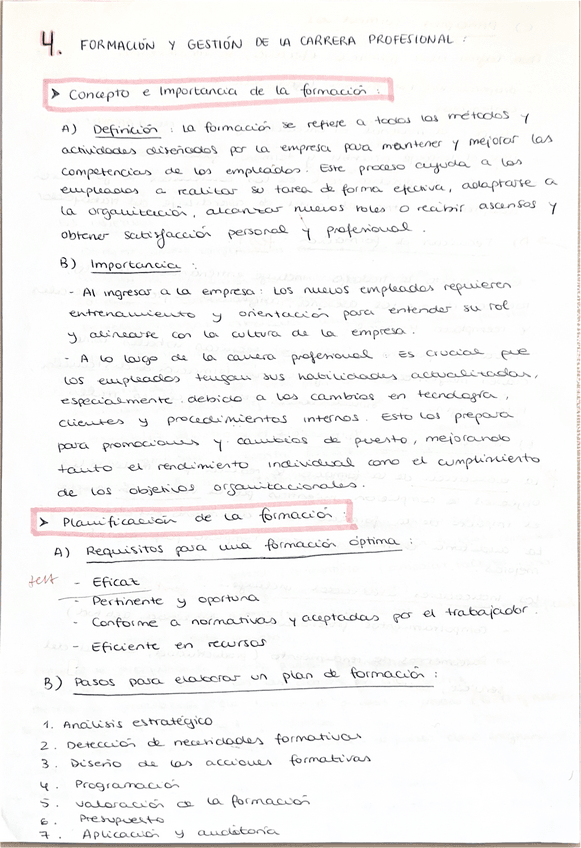 4. FORMACIÓN Y GESTIÓN DE LA CARRERA PROFESIONAL :
➤ Concepto e Importancia de la formación :
A) Definición : La formación se refiere a todos los métodos y
actividades diseñados por la empresa para mantener y mejorar las
competencias de los empleados. Este proceso ayuda a los
empleados a realizar su tarea de forma efectiva, adaptarse a
la organización, alcanzar nuevos roles o recibir ascensos y
obtener satisfacción personal y profesional.
B) Importancia :
- Al ingresar a la empresa : Los nuevos empleados requieren
entrenamiento y orientación para entender su rol
y alinearse con la cultura de la empresa.
- A lo largo de la carrera profesional : Es crucial que
los empleados tengan sus habilidades actualizadas,
especialmente debido a los cambios en tecnología,
clientes y procedimientos internos. Esto los prepara
para promociones y cambios de puesto, mejorando
tanto el rendimiento individual como el cumplimiento
de los objetivos organizacionales.
➤ Planificación de la formación :
A) Requisitos para una formación óptima :
test - Eficaz
- Pertinente y oportuna
- Conforme a normativas y aceptadas por el trabajador.
- Eficiente en recursos
B) Pasos para elaborar un plan de formación :
1. Análisis estratégico
2. Detección de necesidades formativas
3. Diseño de las acciones formativas
4. Programación
5. Valoración de la formación
6. Presupuesto
7. Aplicación y auditoría